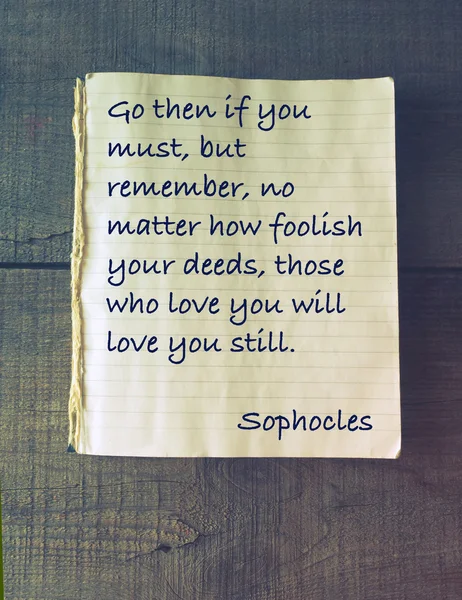 Go then if you
must, but
remember, no
matter how foolish
your deeds, those
who love you will
love you still.
Sophocles